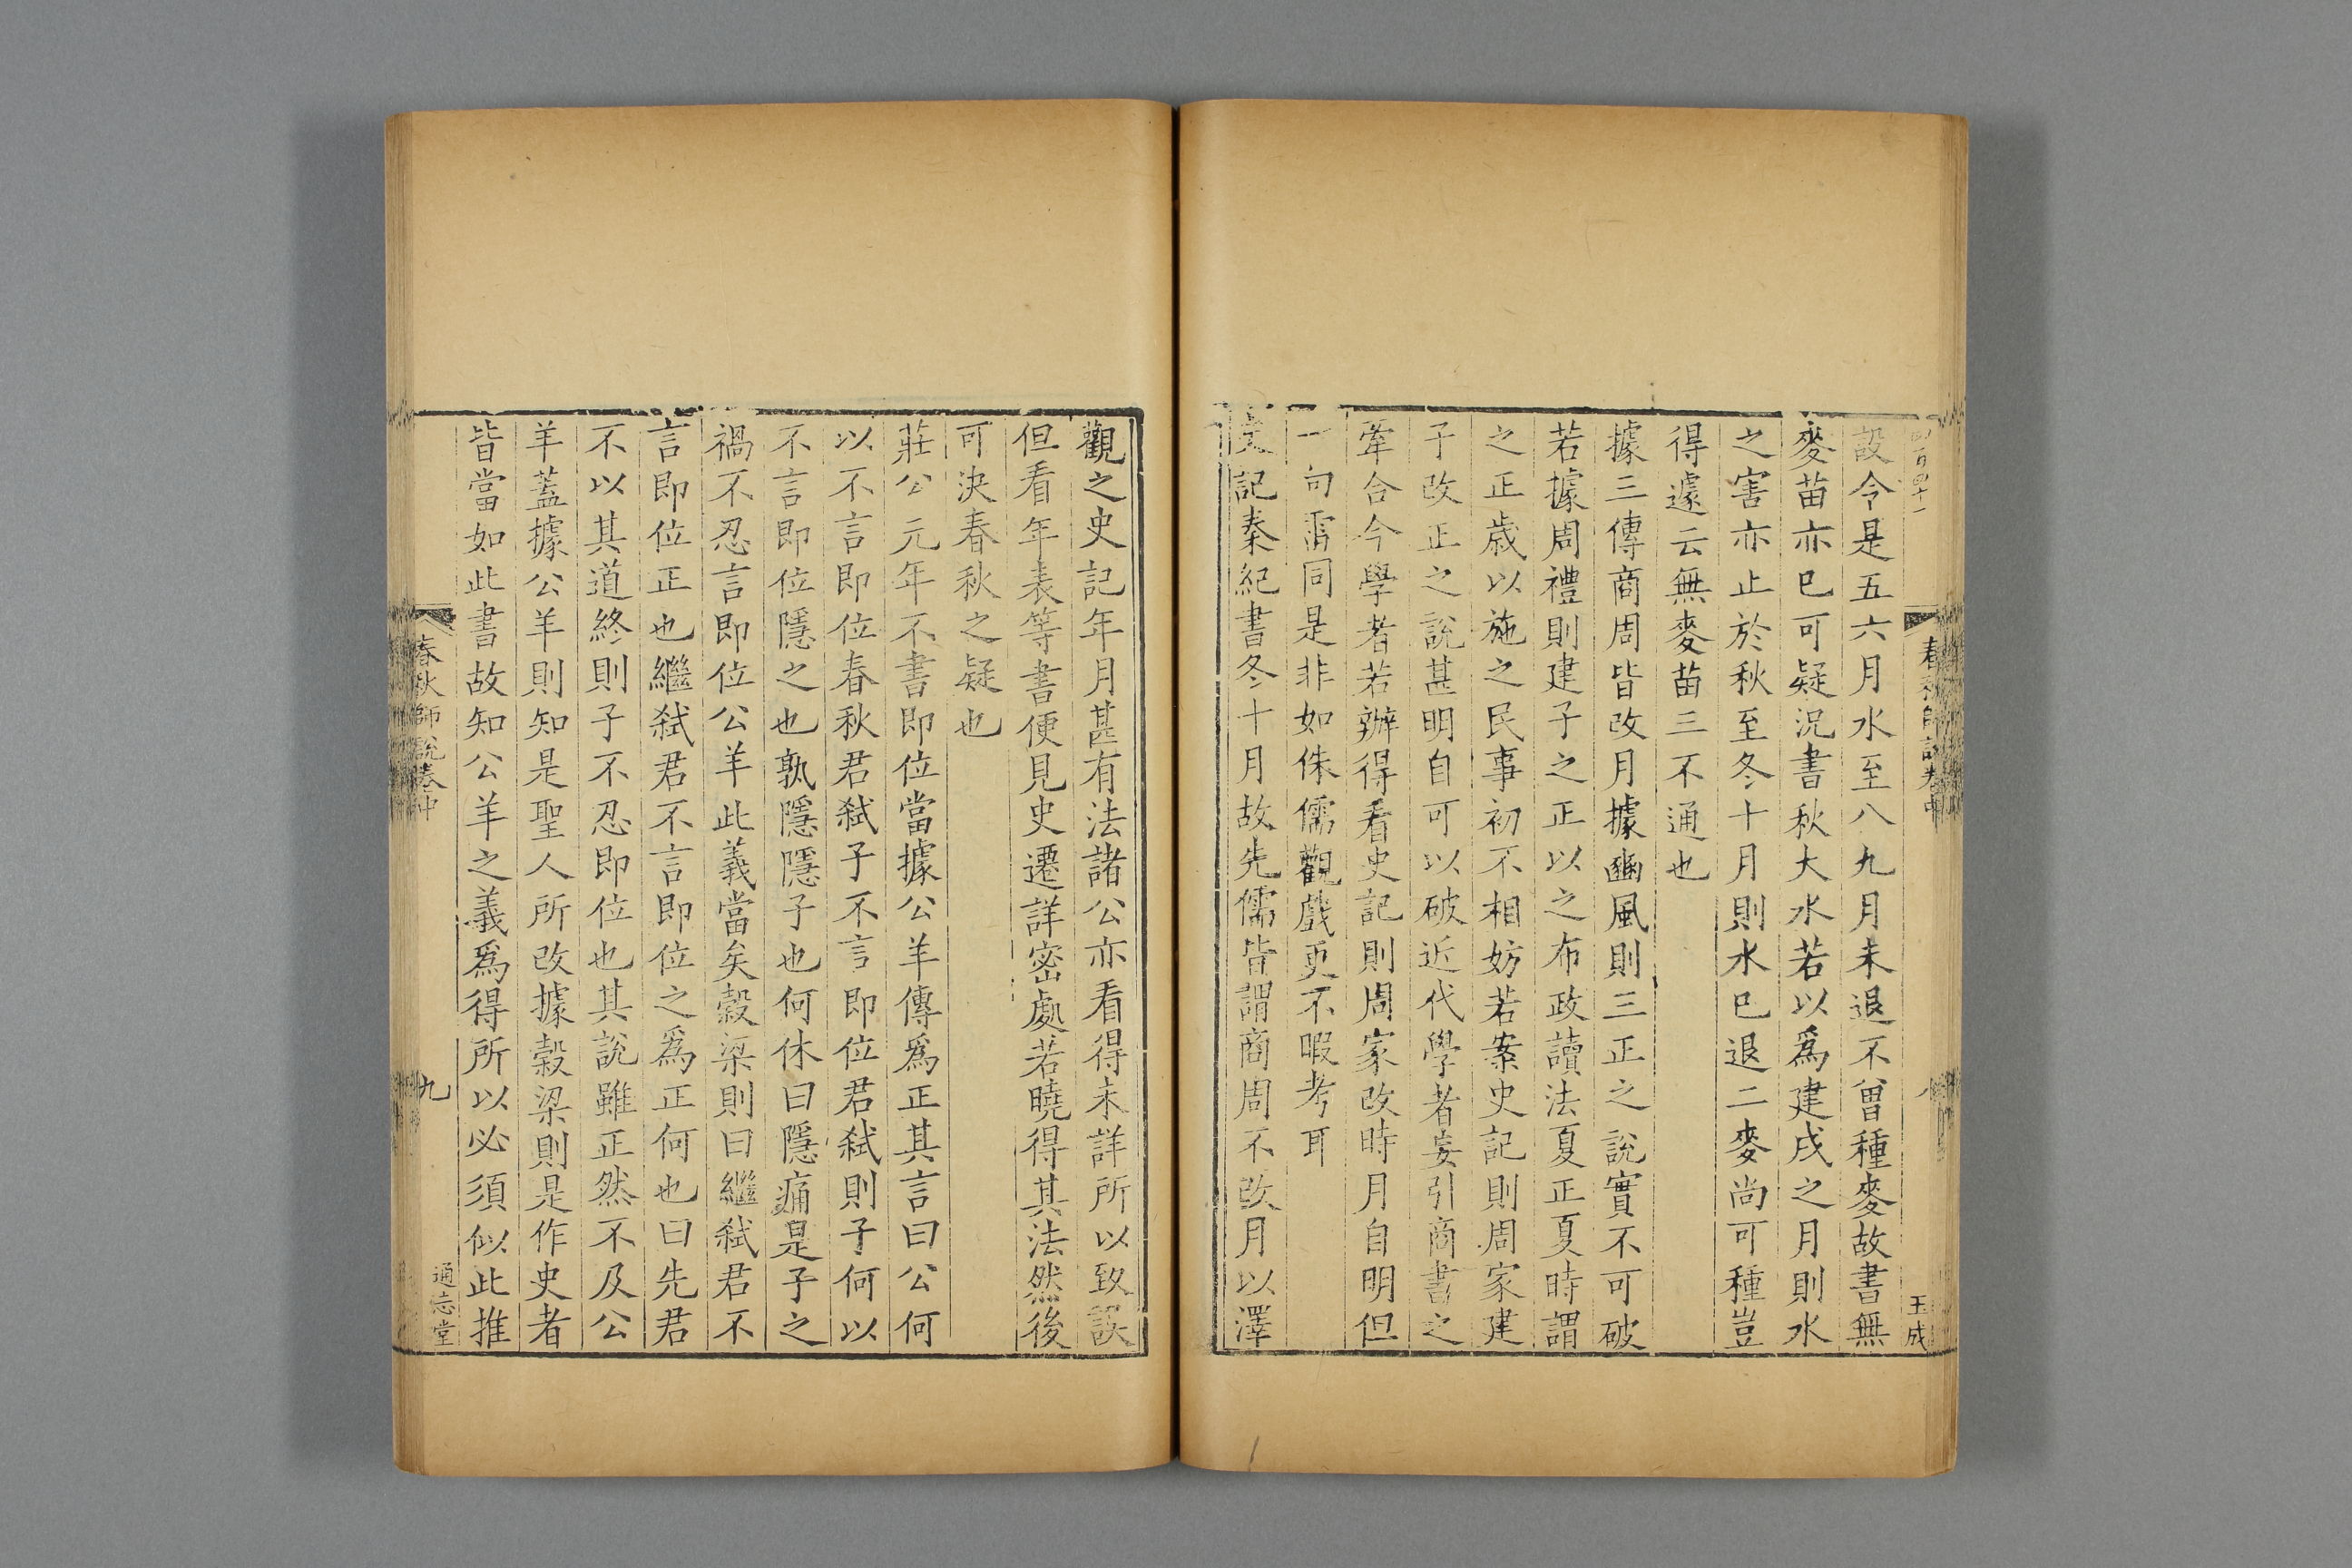 四百四十一
春秋師說卷中
八
玉成
設令是五六月水至八九月未退不曾種麥故書無
麥苗亦已可疑況書秋大水若以爲建戌之月則水
之害亦止於秋至冬十月則水已退二麥尚可種豈
得遽云無麥苗三不通也
據三傳商周皆改月據豳風則三正之說實不可破
若據周禮則建子之正以之布政讀法夏正夏時謂
之正歲以施之民事初不相妨若案史記則周家建
子改正之說甚明自可以破近代學者妄引商書之
牽合今學者若辦得看史記則周家改時月自明但
一句雷同是非如侏儒觀戲更不暇考耳
史記秦紀書冬十月故先儒皆謂商周不改月以澤
觀之史記年月甚有法諸公亦看得未詳所以致誤
但看年表等書便見史遷詳密處若曉得其法然後
可決春秋之疑也
莊公元年不書即位當據公羊傳爲正其言曰公何
以不言即位春秋君弒子不言即位君弒則子何以
不言即位隱之也孰隱隱子也何休曰隱痛是子之
禍不忍言即位公羊此義當矣穀梁則曰繼弒君不
言即位正也繼弒君不言即位之爲正何也曰先君
不以其道終則子不忍即位也其說雖正然不及公
羊蓋據公羊則知是聖人所改據穀梁則是作史者
皆當如此書故知公羊之義爲得所以必須似此推
春秋師說卷中
九
通志堂